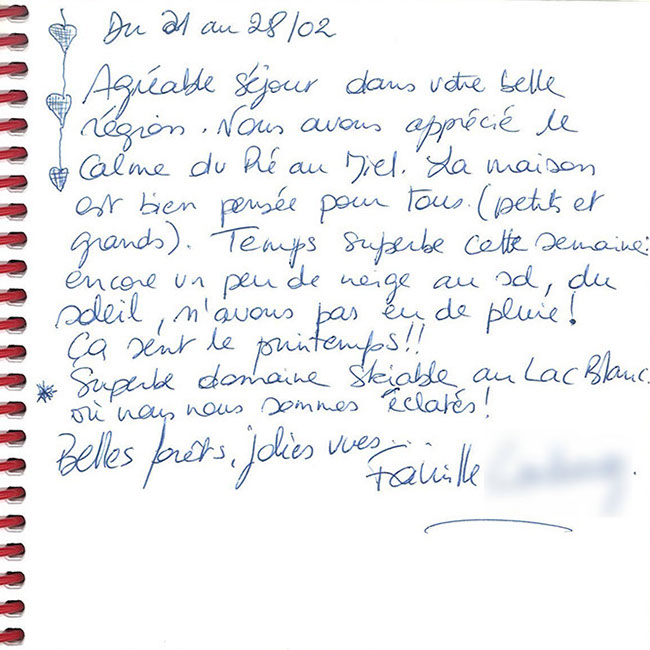 Du 21 au 28/02
Agréable séjour dans votre belle
région. Nous avons apprécié le
Calme du Pré au Miel. La maison
est bien pensée pour tous. (petits et
grands). Temps superbe cette semaine:
encore un peu de neige au sol, du
soleil, n'avons pas eu de pluie!
Ça sent le printemps!!
* Superbe domaine skiable au Lac Blanc.
où nous nous sommes éclatés!
Belles forêts, jolies vues...
Famille